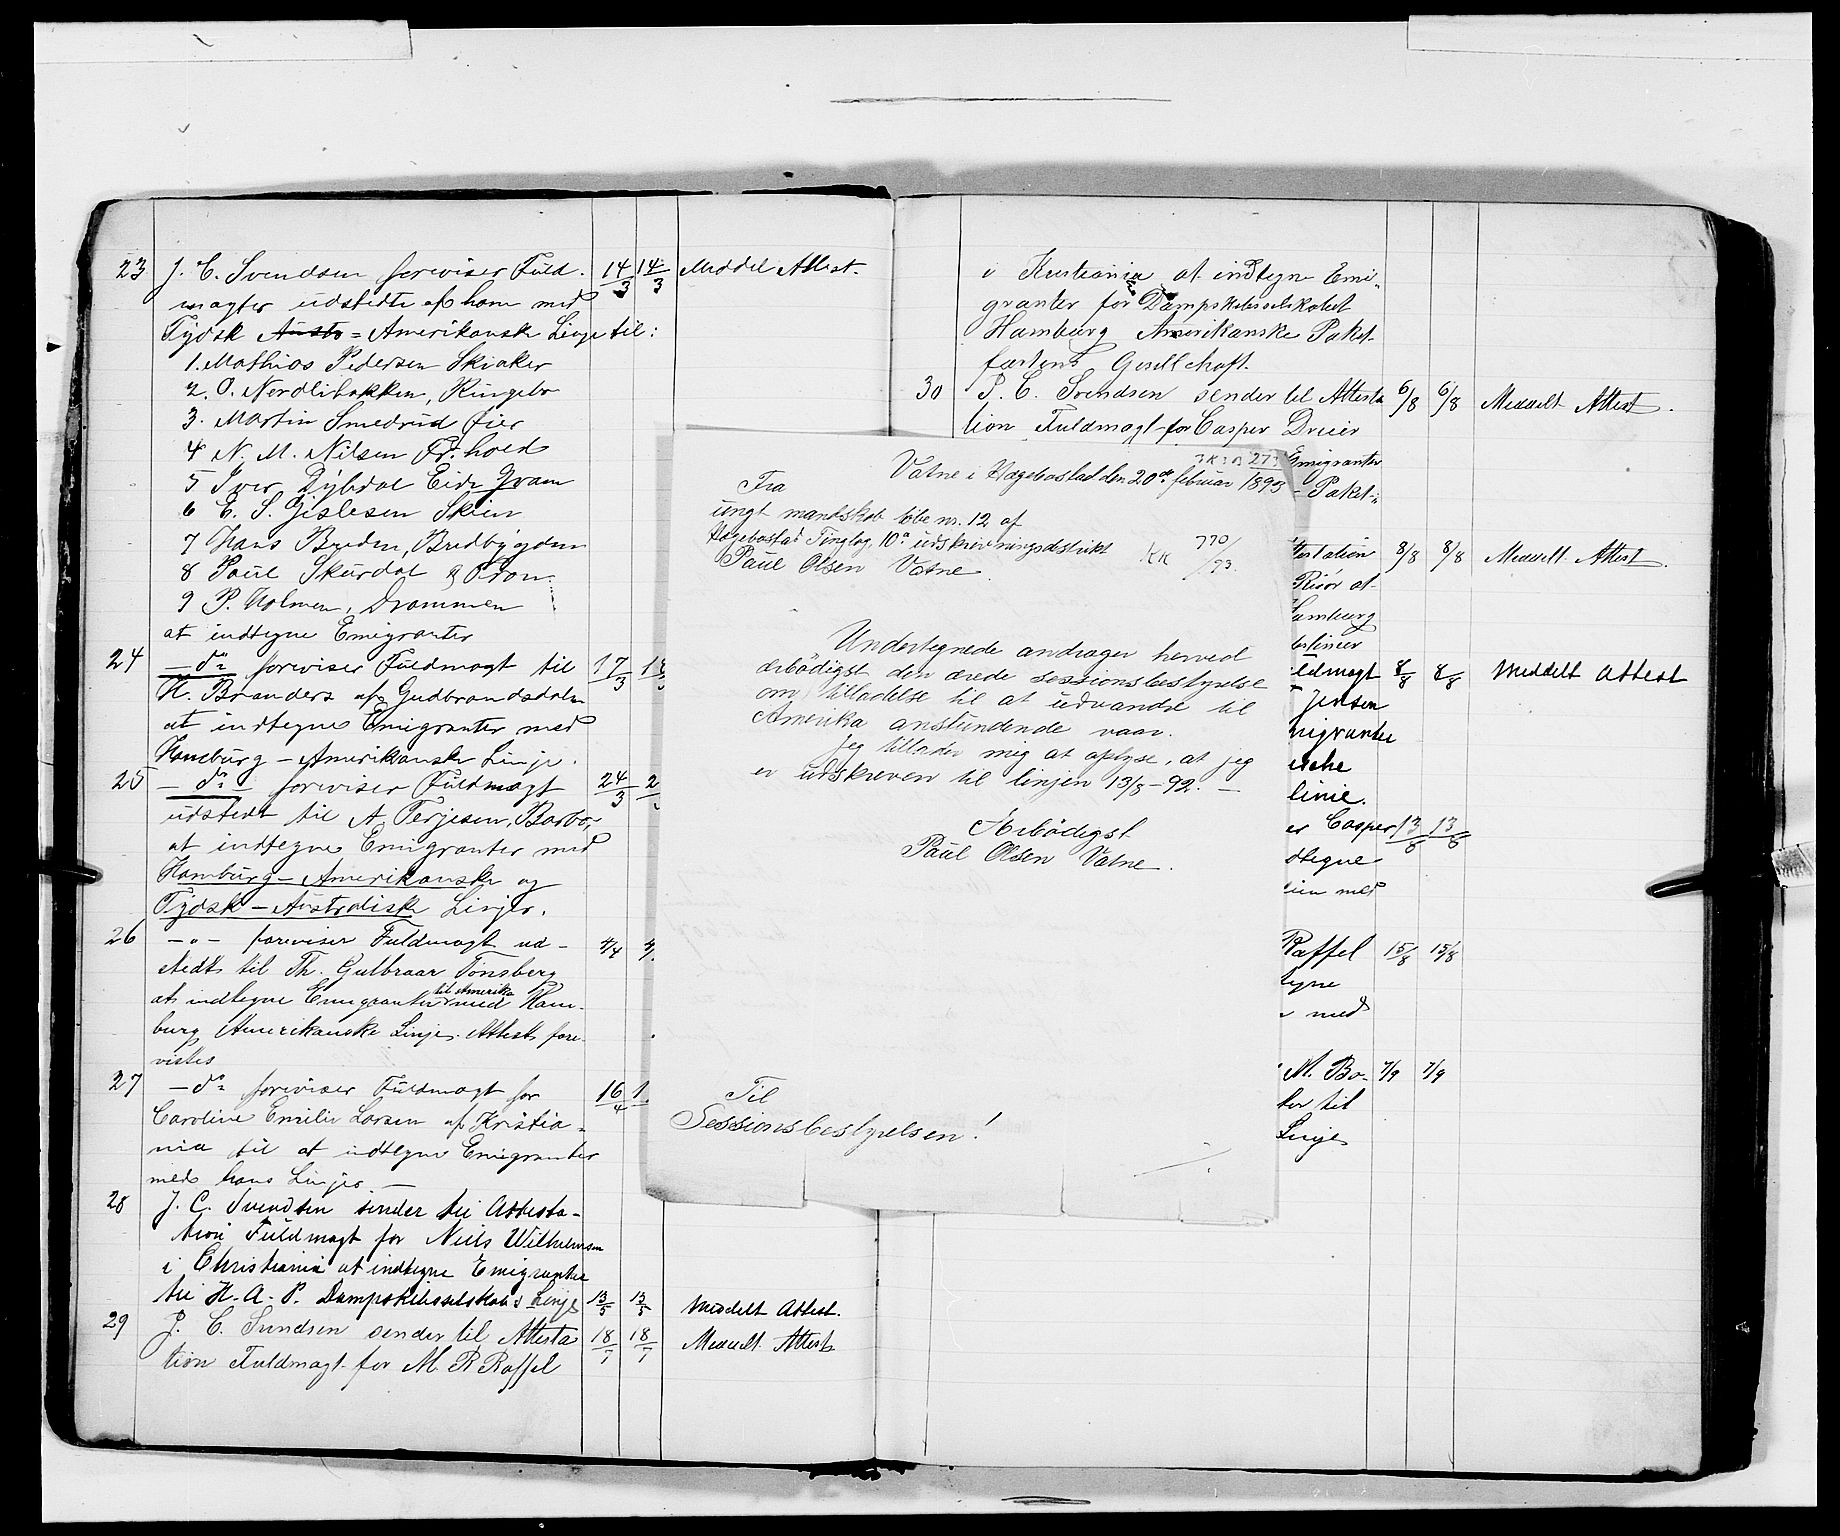 23 J. C. Svendsen foreviser Fuld- 14/3 14/3 Meddel Attest.
magter udstedte af ham med
Tydsk Austr= Amerikansk Linje til:
1. Mathias Pedersen Skiaker
2. O. Nordlibakken, Ringebo
3. Martin Smedrud Øier
4 N. M. Nilsen Fr.hald
5 Iver Dybdal Eide Qvam
6 E. S. Gislesen Skien
7 Hans Breden, Bredbygden
8 Paul Skurdal Fron.
9 P. Holmen, Drammen
at indtegne Emigranter
24 — do foreviser Fuldmagt til 17/3
H. Branders af Gudbrandsdalen
at indtegne Emigranter med
Hamburg – Amerikansk Linje.
25 — do foreviser Fuldmagt 24/3
udstedt til A Terjesen, Barbo,
at indtegne Emigranter med
Hamburg – Amerikanske og
Tydsk – Australiske Linjer.
26 — " — foreviser Fuldmagt ud- 4/4
stedt til Th. Gulbraar Tønsberg
at indtegne Emigranter til Amerika med Ham-
burg Amerikanske Linje. Attest fore-
vistes
27 — do foreviser Fuldmagt for 16/4
Caroline Emilie Larsen af Kristia-
nia til at indtegne Emigranter
med hans Linjer —
28 J. C. Svendsen sender til Attesta-
tion Fuldmagt for Niels Wilhelmsen
i Christiania at indtegne Emigranter
til H. A. P. Dampskibsselskabs Linje 13/5 13/5 Meddelt Attest.
29 J. C. Svendsen sender til Attesta 18/7 18/7 Meddelt Attest
tion Fuldmagt for M R Raffel
i Kristiania at indtegne Emi-
granter for Dampskibsselskabet
Hamburg Amerikanske Paket-
fartens Gesellschaft.
30 J. C. Svendsen sender til Attesta 6/8 6/8 Meddelt Attest.
tion Fuldmagt for Casper Dreier
Emigranter
– Paket-
testation 8/8 8/8 Meddelt Attest.
Risør at
Hamburg
ldmagt 8/8 8/8 Meddelt Attest
Jensen
migranter
linie.
er Casper 13/8 13/8
dtegne
ien med
Raffel 15/8 15/8
tegne
med
M. Bo- 7/9 7/9
ter til
Linje
Vatne i Hægebostad den 20de februar 1893
Fra
ungt mandskab løbe nr. 12 af
Hægebostad Tinglag, 10de udskrivningsdistrikt KK 770/93.
Paul Olsen Vatne.
Undertegnede andrager herved
ærbødigst den ærede sessionsbestyrelse
om tilladelse til at udvandre til
Amerika anstundende vaar.
Jeg tillader mig at oplyse, at jeg
er udskreven til linjen 13/8 – 92. —
Ærbødigst
Paul Olsen Vatne.
Til
Sessionsbestyrelsen!